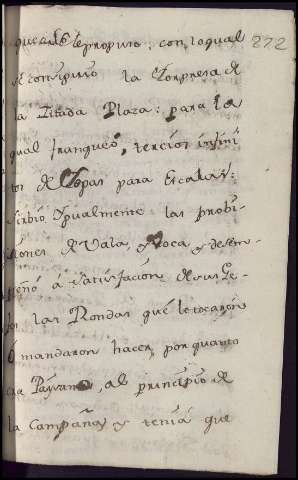 que assi se propuso; con lo qual 272
se consiguio la Sorpresa de
la Citada Plaza: para la
qual franqueó, tercios infini
tos de Ropas para Escalas:
Sirbió Igualmente las probi-
siones de Vala, y voca, y desem-
peñó a Satisfacion de sus Ge-
fes las Rondas que le tocaron
ó mandaron hacer, por quanto
era Paysano, al principio de
la Campaña, y tenia que